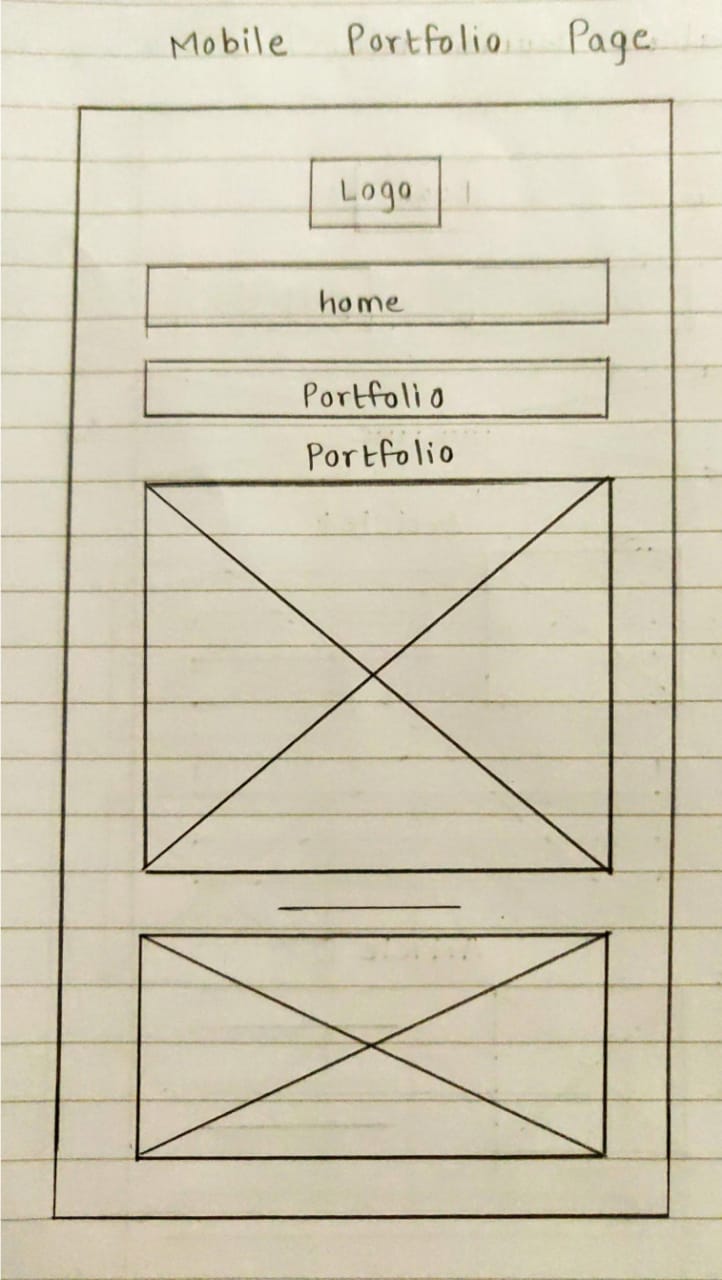 Mobile Portfolio Page
Logo
home
Portfolio
Portfolio